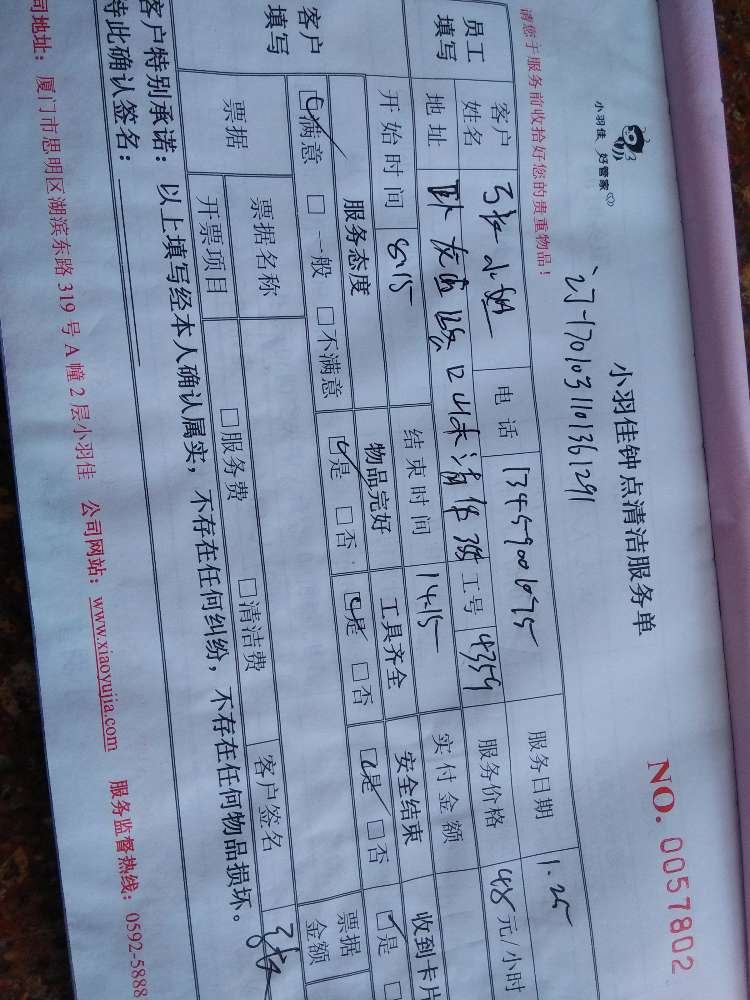 小羽佳 好管家
小羽佳钟点清洁服务单
NO. 0057802
订-1701031101361291
请您于服务前收拾好您的贵重物品！
员工填写
客户姓名
电话 13459006075
服务日期 1.25
地址
工号 4359
服务价格 48元/小时
开始时间 8:15
结束时间 14:15
实付金额
客户填写
服务态度 物品完好 工具齐全 安全结束 收到卡片
☑满意 □一般 □不满意 ☑是 □否 ☑是 □否 ☑是 □否 ☑是
票据
票据名称
票据金额
开票项目 □服务费 □清洁费
客户签名
客户特别承诺：以上填写经本人确认属实，不存在任何纠纷，不存在任何物品损坏。
特此确认签名：
司地址：厦门市思明区湖滨东路319号A幢2层小羽佳 公司网站：www.xiaoyujia.com 服务监督热线：0592-5888